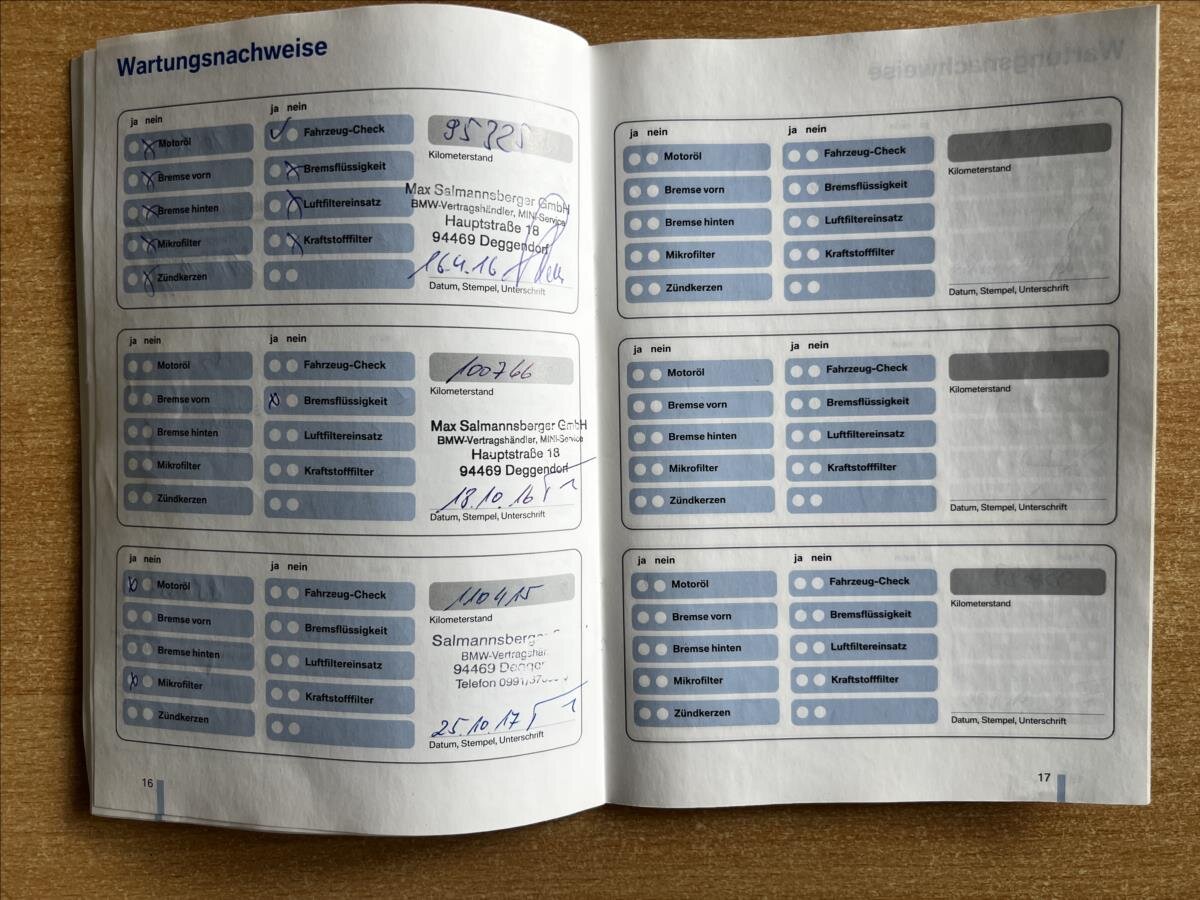 Wartungsnachweise
ja nein
ja nein
Motoröl
Bremse vorn
Bremse hinten
Mikrofilter
Zündkerzen
Fahrzeug-Check
Bremsflüssigkeit
Luftfiltereinsatz
Kraftstofffilter
95325
Kilometerstand
Max Salmannsberger GmbH
BMW-Vertragshändler, MINI-Service
Hauptstraße 18
94469 Deggendorf
16.4.16
Datum, Stempel, Unterschrift
ja nein
ja nein
Motoröl
Bremse vorn
Bremse hinten
Mikrofilter
Zündkerzen
Fahrzeug-Check
Bremsflüssigkeit
Luftfiltereinsatz
Kraftstofffilter
100766
Kilometerstand
Max Salmannsberger GmbH
BMW-Vertragshändler, MINI-Service
Hauptstraße 18
94469 Deggendorf
13.10.16
Datum, Stempel, Unterschrift
ja nein
ja nein
Motoröl
Bremse vorn
Bremse hinten
Mikrofilter
Zündkerzen
Fahrzeug-Check
Bremsflüssigkeit
Luftfiltereinsatz
Kraftstofffilter
110415
Kilometerstand
Salmannsberge
BMW-Vertragshä
94469 Deggen
Telefon 0991/370
25.10.17
Datum, Stempel, Unterschrift
16
ja nein
ja nein
Motoröl
Bremse vorn
Bremse hinten
Mikrofilter
Zündkerzen
Fahrzeug-Check
Bremsflüssigkeit
Luftfiltereinsatz
Kraftstofffilter
Kilometerstand
Datum, Stempel, Unterschrift
ja nein
ja nein
Motoröl
Bremse vorn
Bremse hinten
Mikrofilter
Zündkerzen
Fahrzeug-Check
Bremsflüssigkeit
Luftfiltereinsatz
Kraftstofffilter
Kilometerstand
Datum, Stempel, Unterschrift
ja nein
ja nein
Motoröl
Bremse vorn
Bremse hinten
Mikrofilter
Zündkerzen
Fahrzeug-Check
Bremsflüssigkeit
Luftfiltereinsatz
Kraftstofffilter
Kilometerstand
Datum, Stempel, Unterschrift
17